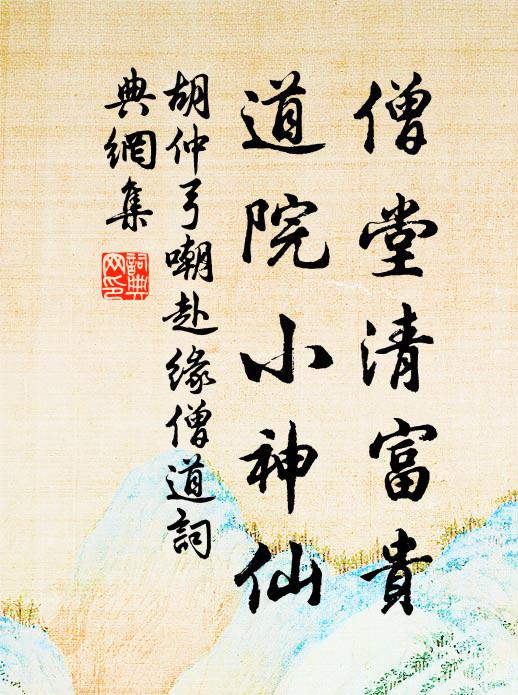 僧堂清富貴
道院小神仙
胡仲弓嘲赴緣僧道詞
典網集
詞典
网印